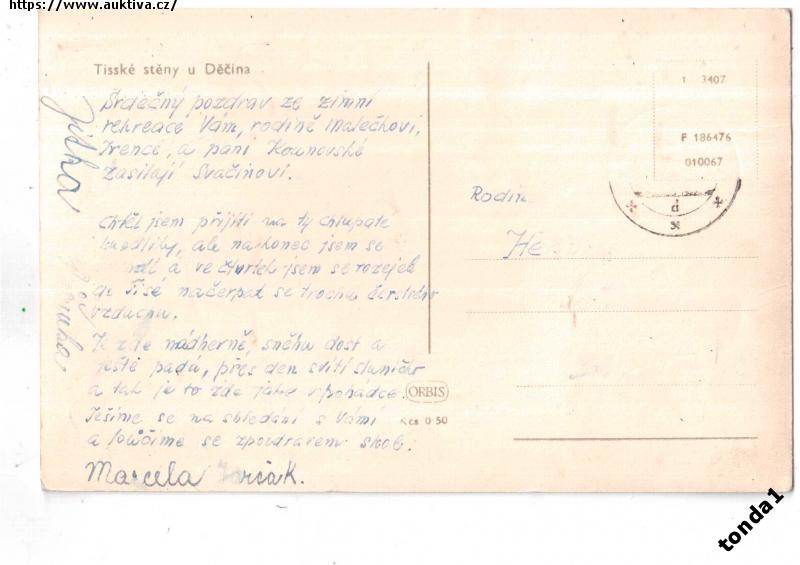 https://www.auktiva.cz/
Tisské stěny u Děčína
Srdečný pozdrav ze zimní
rekreace Vám, rodině Malečkovi,
Irence, a paní Kounovské
zasílají Svačinovi.
Chtěl jsem přijíti na ty chlupaté
knedlíky, ale nakonec jsem se
a ve čtvrtek jsem se rozejel
do Tisé načerpat se trochu čerstvého
vzduchu.
Je zde nádherně, sněhu dost a
ještě padá, přes den svítí sluníčko
a tak je to zde jako v pohádce.
Těšíme se na shledání s Vámi
a loučíme se zpozdravem
Marcela
Jitka
1 3407
F 186476
010067
d
Rodin
He
ORBIS
Kčs 0 50
tonda1